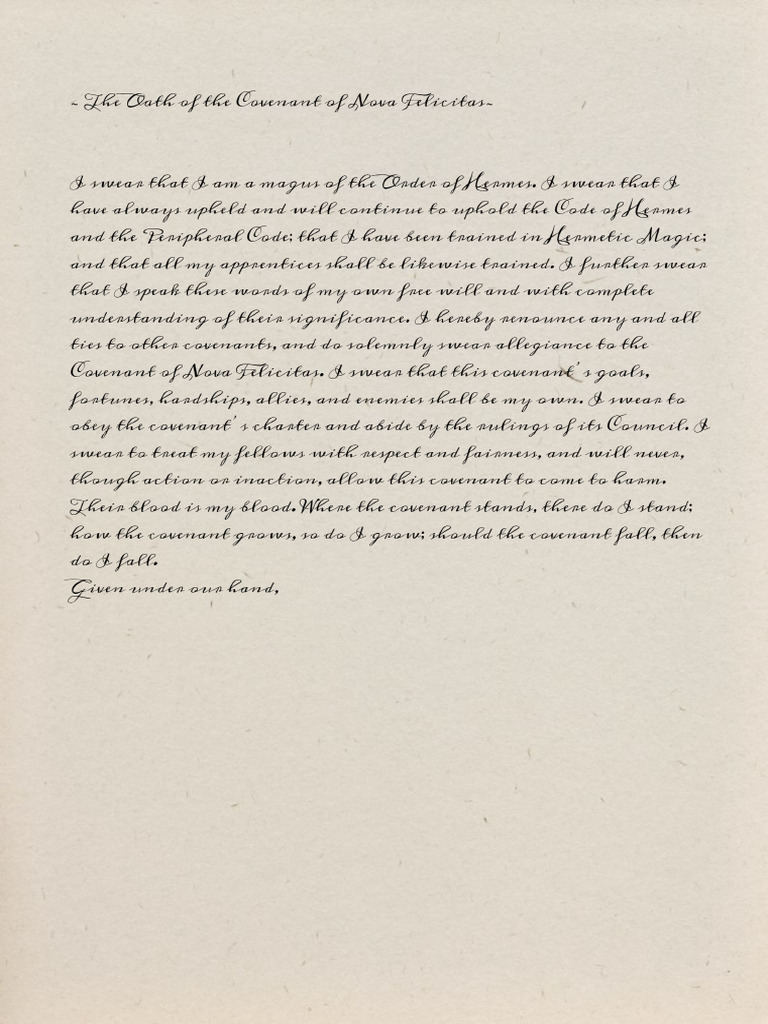 ~ The Oath of the Covenant of Nova Felicitas~
I swear that I am a magus of the Order of Hermes. I swear that I
have always upheld and will continue to uphold the Code of Hermes
and the Peripheral Code; that I have been trained in Hermetic Magic;
and that all my apprentices shall be likewise trained. I further swear
that I speak these words of my own free will and with complete
understanding of their significance. I hereby renounce any and all
ties to other covenants, and do solemnly swear allegiance to the
Covenant of Nova Felicitas. I swear that this covenant's goals,
fortunes, hardships, allies, and enemies shall be my own. I swear to
obey the covenant's charter and abide by the rulings of its Council. I
swear to treat my fellows with respect and fairness, and will never,
though action or inaction, allow this covenant to come to harm.
Their blood is my blood. Where the covenant stands, there do I stand;
how the covenant grows, so do I grow; should the covenant fall, then
do I fall.
Given under our hand,